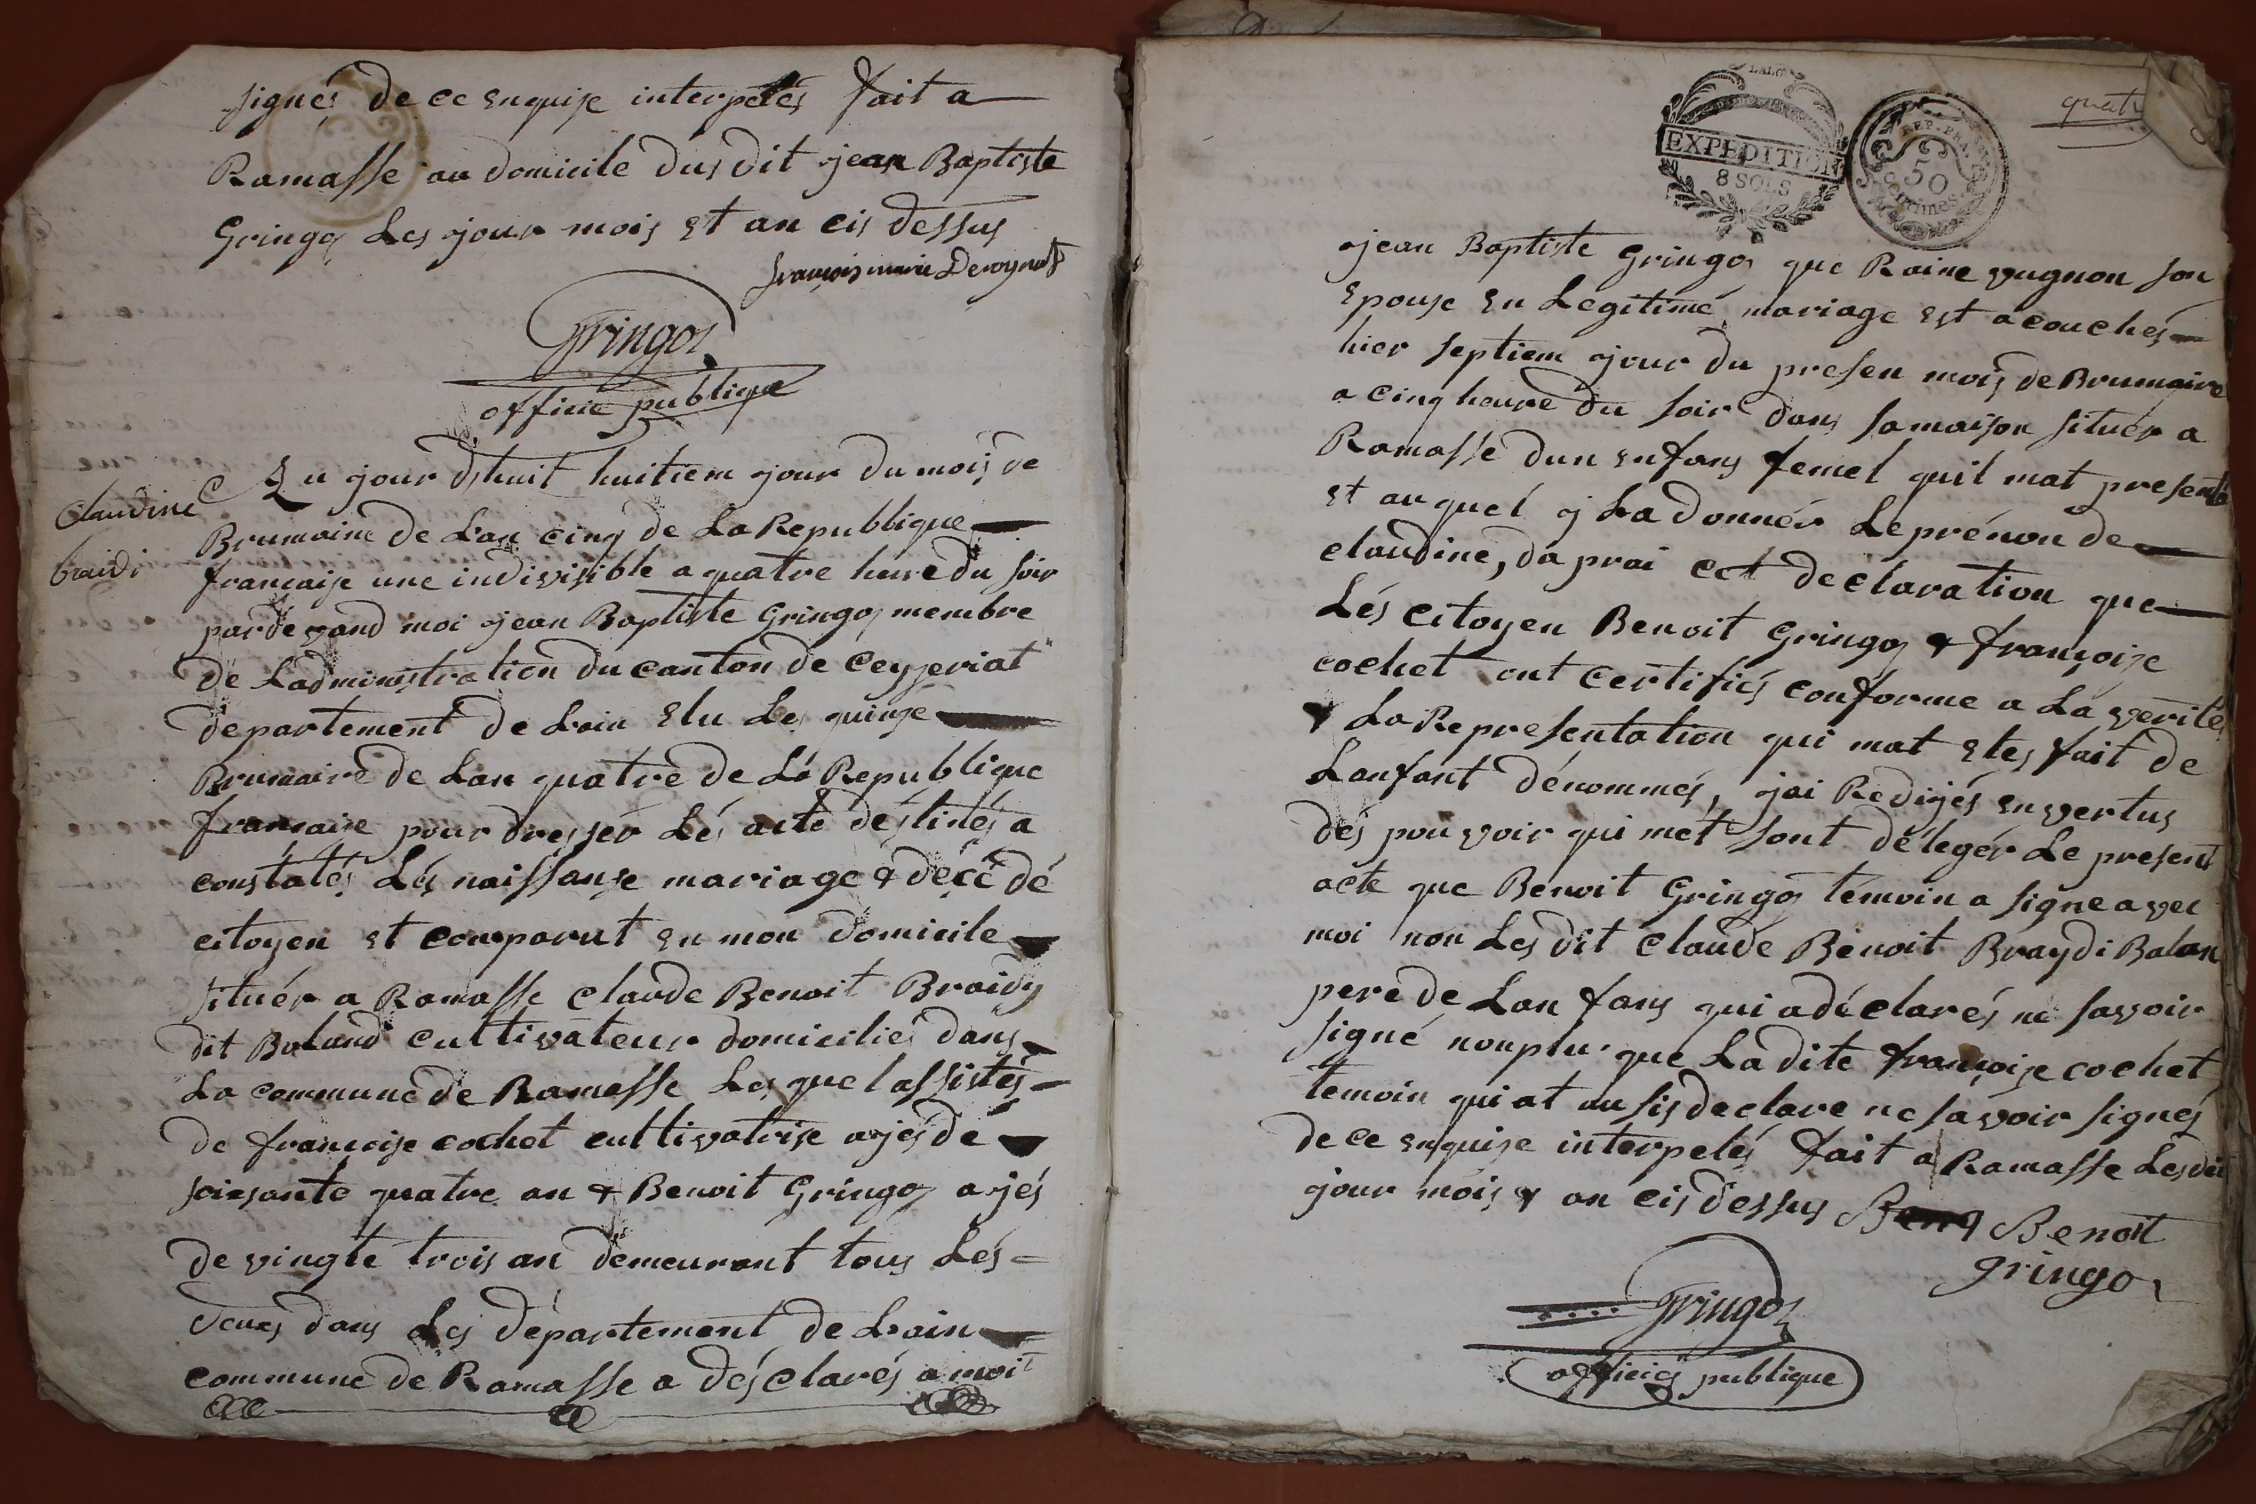 signés de ce enquise interpelés fait a
Ramasse au domicile dus dit jean Baptiste
Gringoz Les jour mois et an cis dessus
françois marie
Gringoz
officié publique
Claudine
braidi
Au jour dhuit huitiem jour du mois de
Brumaire de Lan cinq de La Republique
francaise une indivisible a quatre heure du soir
pardevand moi jean Baptiste Gringoz membre
de Ladministration du canton de Ceyzeriat
departement de Lain Elu Les quinze
Brumaire de Lan quatre de La Republique
francaise pour dressér Lés acte déstinés a
constatés Lés naissanse mariage & décé dé
citoyen et comparut en mon domicile
situér a Ramasse Claude Benoit Braidy
dit Baland cultivateur domiciliés dans
La commune de Ramasse Les quel assistés
de francoise cochet cultivatrise ajés de
soisante quatre an & Benoit Gringoz ajés
de vingte trois an demeurant tous Lés
deux dans Les département de Lain
commune de Ramasse a désclarés a moi
LALO
EXPEDITION
8 SOLS
REP. FRA.
50
centimes
quatr
jean Baptiste Gringoz que Raine vugnon son
Epouse en Legitime mariage est acouchés
hier septiem jour du presen mois de Brumaire
a cinq heure du soir dans samaison situér a
Ramasse dun enfans femel quil mat presenté
et auquel j La donnér Le prénon de
claudine, da prai cet declaration que
Lés citoyen Benoit Gringoz & françoise
cochet ont certifiés conforme a La verité
& La Representation qui mat etes fait de
Lanfant dénommés, jai Redijés envertus
dés pouvoir qui mét sont délegér Le present
acte que Benoit Gringoz témoin a signe avec
moi non Les dit claude Benoit Braydi Balan
pere de Lan fans qui adéclarés ne savoir
signé nonplu que Ladite françoise cochet
temoin qui at ausis declare ne savoir signés
de ce enquise interpelés fait a Ramasse Lesdit
jour mois & an cis dessus Benoit
gringoz
Gringoz
officiés publique